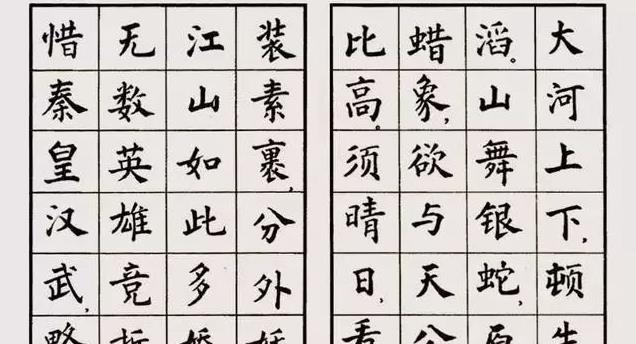 大河上下,顿失
滔。山舞银蛇,原
蜡象,欲与天公
比高。须晴日,看
装素裹,分外妖
江山如此多娇
无数英雄竞折
惜秦皇汉武,略